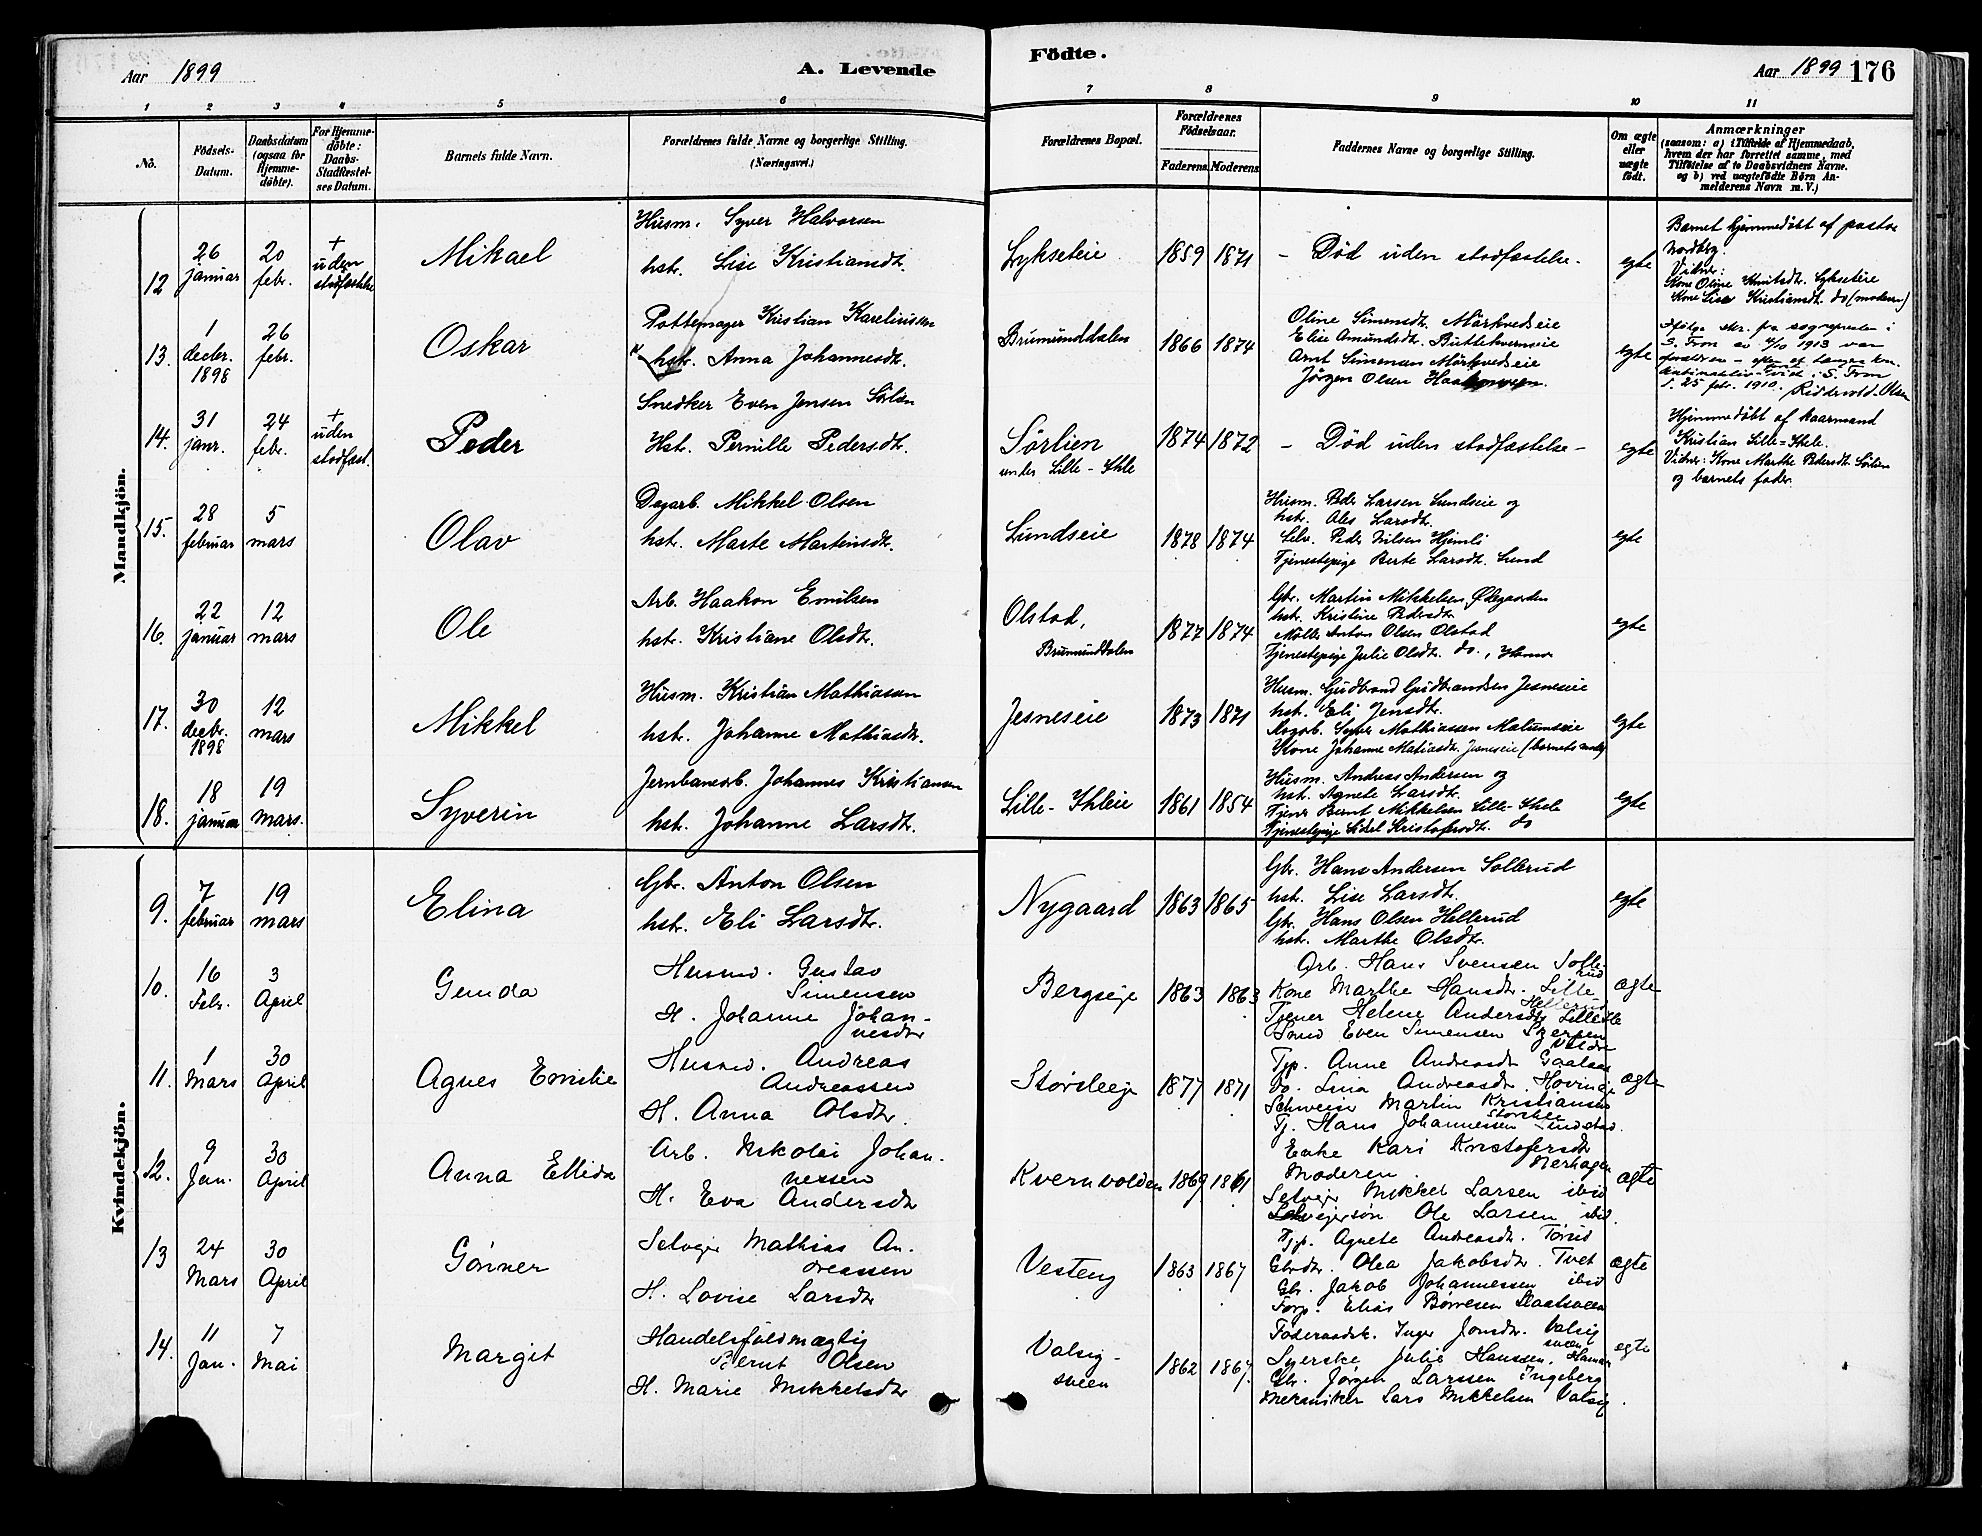 Aar 1899
A. Levende
Födte.
Aar 1899 176
1 2 3 4 5 6 7 8 9 10 11
No.
Födsels-Datum.
Daabsdatum (ogsaa for Hjemmedöbte).
For Hjemmedöbte: Daabs-Stadfæstelses Datum.
Barnets fulde Navn.
Forældrenes fulde Navne og borgerlige Stilling.
(Næringsvei.)
Forældrenes Bopæl.
Forældrenes Födselsaar.
Faderens. Moderens.
Faddernes Navne og borgerlige Stilling.
Om ægte eller uægte födt.
Anmærkninger
(saasom: a) i Tilfælde af Hjemmedaab, hvem der har forrettet samme, med Tilföielse af to Daabsvidners Navne. og b) ved uægtefödte Börn Anmelderens Navn m. V.)
Mandkjön.
12 26 januar 20 febr. + uden stadfæstelse
Mikael
Husm. Syver Halvorsen
hstr. Lise Kristiansdtr.
Lykseteie 1859 1871
- Död uden stadfæstelse -
egte
Barnet hjemmedöbt af pastor Nordberg.
Vidner:
Kone Oline Knutsdtr. Lykseteie
Kone Lise Kristiansdtr. do (moderen)
13. 1 decbr. 1898 26 febr.
Oskar
Pottemager Kristian Kareliussen
hstr. Anna Johannesdtr.
Brumunddalen 1866 1874
Oline Simensdtr. Mörkvedseie
Elise Amundsdtr. Bittekverneie
Arnt Simensen Mörkvedseie
Jörgen Olsen
egte
Ifölge skr. fra sognepresten i
S. Fron av 4/10 1913 var
S. Fron
d. 25 febr. 1910. Ridderwold-Olsen
14. 31 janr. 24 febr. + uden stadfæst.
Peder
Snedker Even Jensen Sörlien
Hstr. Pernille Pedersdtr.
Sörlien
under Lille-Ihle
1874 1872
- Död uden stadfæstelse -
egte
Hjemmedöbt af kaarmand
Kristian Lille-Ihle.
Vidner: Kone Marthe Pedersdtr. Sörlien
og barnets fader.
15. 28 februar 5 mars
Olav
Dagarb. Mikkel Olsen
hstr. Marte Martinsdtr.
Lundseie 1878 1874
Husm. Peder Larsen Lundseie og
hstr. Oles Larsdtr.
Selv. Peder Nilsen Hjemli
Tjenestepige Berte Larsdtr. Lund
egte
16. 22 januar 12 mars
Ole
Arb. Haakon Emilsen
hstr. Kristiane Olsdtr.
Olstad,
Brumunddalen
1877 1874
Gbr. Martin Mikkelsen Ödegaarden
hstr. Kristine Pedersdtr.
Möller Anton Olsen Olstad
Tjenestepige Julie Olsdtr. do., Hamar
egte
17. 30 decbr. 1898 12 mars
Mikkel
Husm. Kristian Mathiassen
hstr. Johanne Mathiasdtr.
Jesneseie 1873 1871
Husm. Gudbrand Gudbrandsen Jesneseie
hstr. Eli Jensdtr.
Syver Mathiassen Malumseie
Kone Johanne Matiasdtr. Jesneseie (barnets moder)
egte
18. 18 januar 19 mars.
Syverin
Jernbanearb. Johannes Kristiansen
hstr. Johanne Larsdtr.
Lille-Ihleie 1861 1854
Husm. Andreas Andersen og
hstr. Agnete Larsdtr.
Tjener Bernt Mikkelsen Lille-Ihle
Tjenestepige Sidsel Kristofersdtr. do
egte
Kvindekjön.
9. 7 februar 19 mars
Elina
Gbr. Anton Olsen
hstr. Eli Larsdtr.
Nygaard 1863 1865
Gbr. Hans Andersen Sollerud
hstr. Lise Larsdtr.
Gbr. Hans Olsen Hellerud
hstr. Marthe Olsdtr.
egte
10. 16 Febr. 3 April
Gunda
Husmd. Gustav
Simensen
H. Johanne Johan-
nesdtr
Bergseje 1863 1863
Arb. Hans Svensen Solle-
rud
Kone Marthe Hansdtr. Lille-
Hellerud
Tjener Helene Andersdtr Lilleihle
Smed Even Simensen
ægte
11. 1 Mars 30 April
Agnes Emilie
Husmd. Andreas
Andreassen
H. Anna Olsdtr.
Storsleeje 1877 1871
Tjp. Anne Andreasdtr Gaalaas
Do. Lina Andreasdtr. Hovinds
Schweiser Martin Kristiansen
Storslee
Tj. Hans Johannessen Lundstad.
ægte
12. 9 Jan. 30 April
Anna Ellida
Arb. Nikolai Johan-
nessen
H. Eva Andersdtr
Kvernvolden 1869 1861
Enke Kari Kristofersdtr
Nerhagen
Moderen.
Selvejer Mikkel Larsen ibid
Selvejersön Ole Larsen ibid.
ægte
13 24 Mars 30 April
Gönner
Selvejer Mathias An-
dreassen
H. Lovise Larsdtr
Vesteng 1863 1867
Tjp. Agnete Andreasdtr. Törud
Gbrdtr. Olea Jakobsdtr. Tvet
Gbr. Jakob Johannessen ibid
Forp. Elias Börresen Staalsveen
ægte
14. 11 Jan. 7 Mai
Margit
Handelsfuldmægtig
Bernt Olsen
H. Marie Mikkelsdtr
Valsig-
sveen
1862 1867.
Föderaadsk. Inger Jonsdtr. Valsig
sveen
Syerske Julie Hanssen, Hamar
Gbr. Jörgen Larssen Ingeberg
Mekaniker Lars Mikkelsen Valsig.
egte